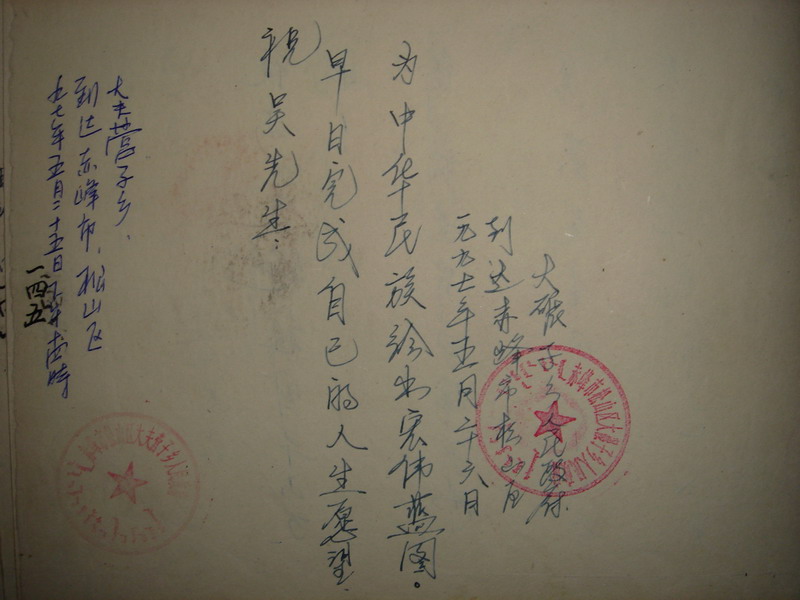 九七年五月二十五日
到达赤峰市，松山区
大夫营子乡．
一四五
祝吴先生：
早日完成自己的人生愿望
为中华民族绘出宏伟蓝图。
一九九七年五月二十六日
到达赤峰市松山区
大碾子乡人民政府